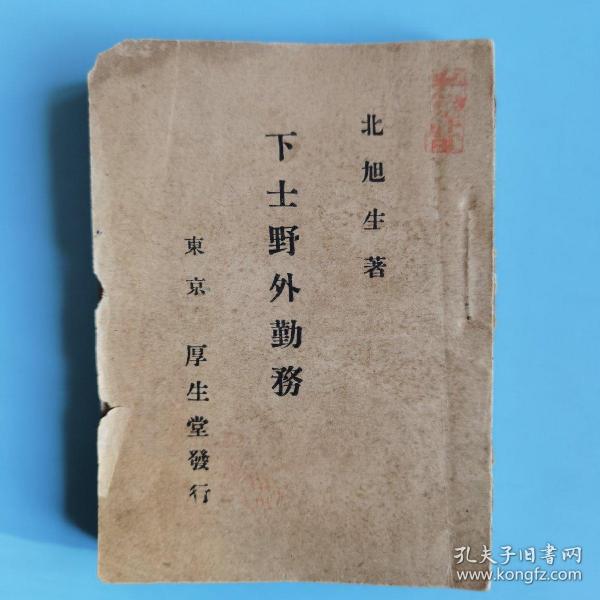 北旭生著
下士野外勤務
東京 厚生堂發行
孔夫子旧書网
www.kongfz.com